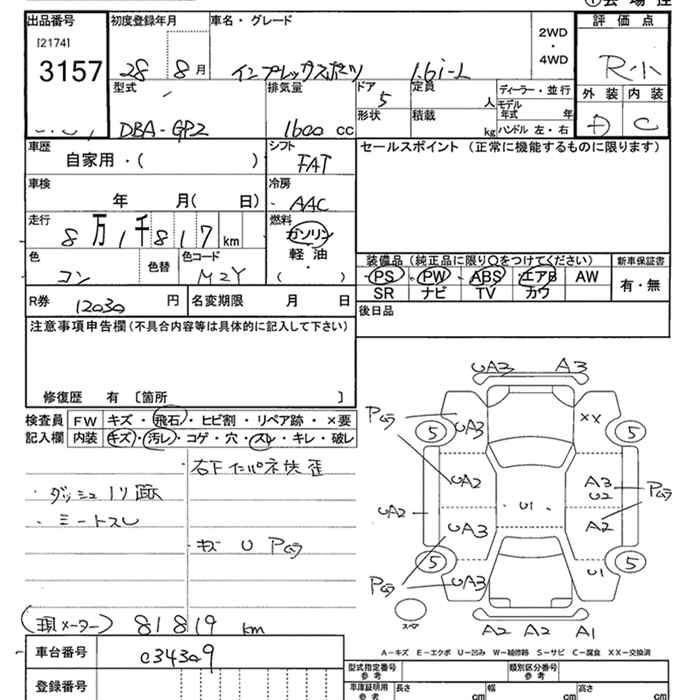 出品番号
[2174]
3157
初度登録年月
28 8月
車名・グレード
インプレッサスポーツ 1.6i-L
2WD
・
4WD
評価点
R小
外装 内装
D C
型式
DBA-GP2
排気量
1600 cc
ドア
5
形状
定員
人
積載
kg
ディーラー・並行
モデル年式 年
ハンドル 左・右
車歴
自家用・( )
シフト
FAT
セールスポイント (正常に機能するものに限ります)
車検
年 月( 日)
冷房
AAC
走行
8万1千817km
燃料
ガソリン
軽油
・
( )
色
コン
色替
色コード
M2Y
装備品 (純正品に限り○をつけてください)
PS PW ABS エアB AW
SR ナビ TV カワ
新車保証書
有・無
R券 12030円
名変期限 月 日
後日品
注意事項申告欄(不具合内容等は具体的に記入して下さい)
修復歴 有 〔箇所 〕
検査員
記入欄
FW キズ・飛石・ヒビ割・リペア跡・×要
内装 キズ・汚レ・コゲ・穴・スレ・キレ・破レ
右下インパネ狭歪
・ダッシュ
・ミートスレ
・キズ U Pムラ
(現メーター) 81819 km
車台番号
登録番号
UA3 A3
Pムラ UA3 ××
5 5
UA2 A3
U2 Pムラ
UA2 U1
UA3 A2
5 5
Pムラ UA3 U1
スペア
A2 A2 A1
A-キズ E-エクボ U-凹み W-補修跡 S-サビ C-腐食 XX-交換済
型式指定番号
参考
類別区分番号
参考
車庫証明用
参考
長さ cm
幅 cm
高さ cm